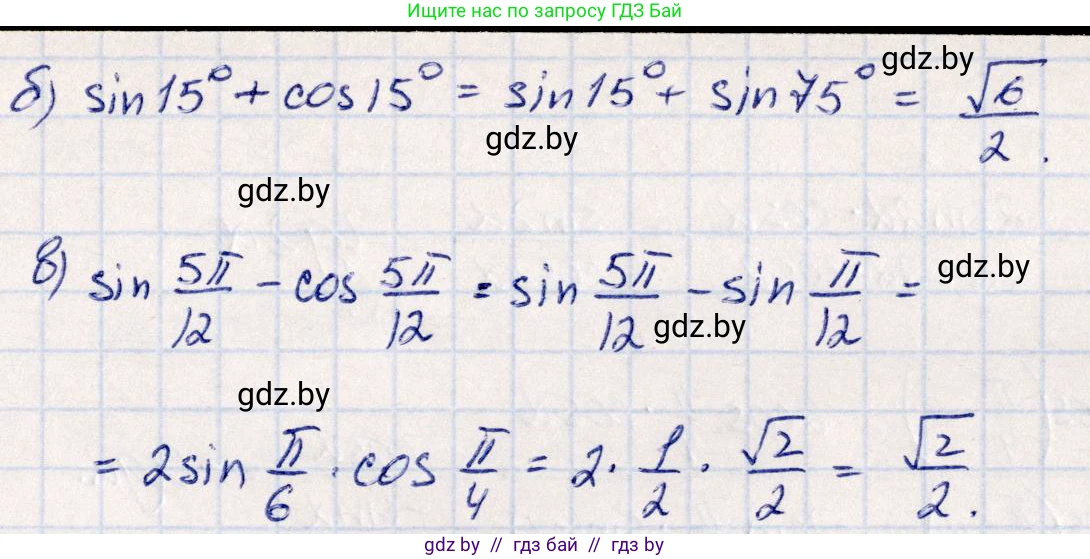 Ищите нас по запросу ГДЗ Бай
б) sin 15° + cos 15° = sin 15° + sin 75° = √6/2.
gdz.by
gdz.by
gdz.by
в) sin 5π/12 - cos 5π/12 = sin 5π/12 - sin π/12 =
gdz.by
gdz.by
gdz.by
= 2 sin π/6 · cos π/4 = 2 · 1/2 · √2/2 = √2/2.
gdz.by // гдз бай // гдз by